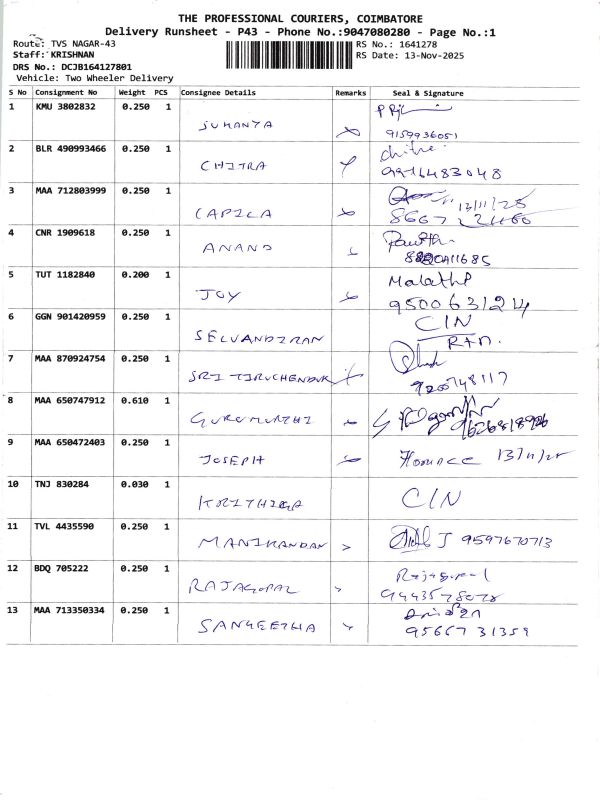 THE PROFESSIONAL COURIERS, COIMBATORE
Delivery Runsheet - P43 - Phone No.:9047080280 - Page No.:1
Route: TVS NAGAR-43
RS No.: 1641278
Staff: KRISHNAN
RS Date: 13-Nov-2025
DRS No.: DCJB164127801
Vehicle: Two Wheeler Delivery
S No Consignment No Weight PCS Consignee Details Remarks Seal & Signature
1 KMU 3802832 0.250 1
SUMANYA
9159936051
2 BLR 490993466 0.250 1
CHITRA
9916483048
3 MAA 712803999 0.250 1
CAPILA
13/11/25
4 CNR 1909618 0.250 1
ANAND
5 TUT 1182840 0.200 1
JOY
Malathi
9500631224
6 GGN 901420959 0.250 1
SELVANDIRAN
CIN
RTN.
7 MAA 870924754 0.250 1
SRI TIRUCHENDUR
8 MAA 650747912 0.610 1
GURUMURTHI
9 MAA 650472403 0.250 1
JOSEPH
13/11/25
10 TNJ 830284 0.030 1
KRITHIGA
CIN
11 TVL 4435590 0.250 1
MANIKANDAN
9597670713
12 BDQ 705222 0.250 1
RAJAGOPAL
Rajagopal
9443578078
13 MAA 713350334 0.250 1
SANGEETHA
9566731359